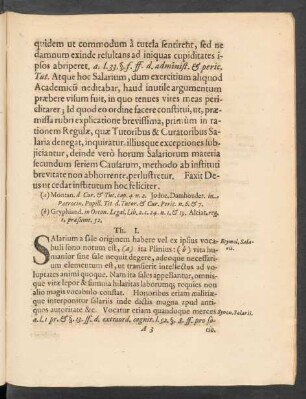 quidem ut commodum à tutela sentiret, sed ne
damnum exinde resultans ad iniquas cupiditates i-
psos abriperet. a. l. 33. §. f. ff. d. administ. & peric.
Tut. Atque hoc Salarium, dum exercitium aliquod
Academicũ meditabar, haud inutile argumentum
præbere visum fuit, in quo tenues vires meas peri-
clitarer; Id quod eo ordine facere constitui, ut, præ-
missa rubri explicatione brevissima, primùm in ra-
tionem Regulæ, quæ Tutoribus & Curatoribus Sa-
laria denegat, inquiratur, illiusque exceptiones sub-
jiciantur, deinde verò horum Salariorum materia
secundum seriem Causarum, methodo ab instituti
brevitate non abhorrente, perlustretur. Faxit De-
us ut cedat institutum hoc feliciter.
(a) Montan. d. Cur. & Tut. cap. 4 n. 2. Jodoc. Damhouder. in
Patrocin. Pupill. Tit. d. Tutor. & Cur. Peric. n. 8. & 7.
(b) Gryphiand. in Oecon. Legal. Lib. 2. c. 24. n. 1. & 13. Alciat. reg.
1. præsumt. 52.
Th. I.
Salarium a sale originem habere vel ex ipsius voca-
buli sono notum est, (a) ita Plinius: (b) vita hu-
manior sine sale nequit degere, adeoque necessari-
um elementum est, ut transierit intellectus ad vo-
luptates animi quoque. Nam ita sales appellantur, omnis-
que vitæ lepor & summa hilaritas laborumq; requies non
alio magis vocabulo constat. Honoribus etiam militiæ-
que interponitur salariis inde dictis magna apud anti-
quos autoritate &c. Vocatur etiam quandoque merces
a. l. 1 pr. & §. 13. ff. d. extraord. cognit. l. 52. §. 8. ff. pro so-
A 3
cio.
Etymol. Sala-
rii.
Synon. Salarii.